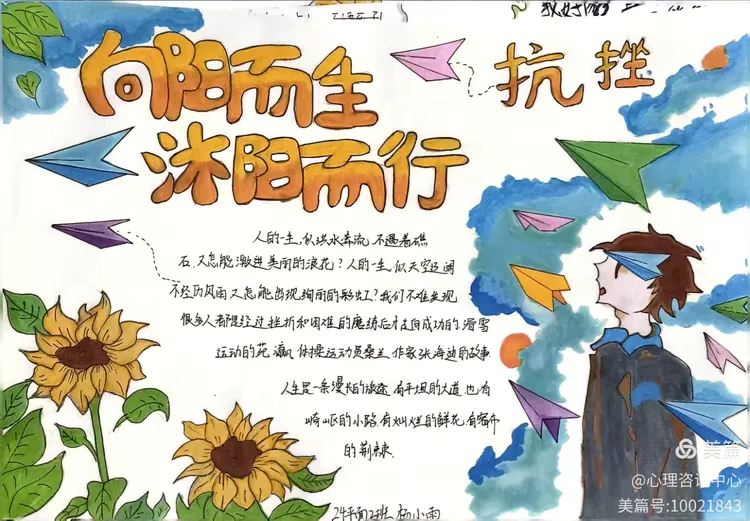 向阳而生
沐阳而行
抗挫
人的一生,似洪水奔流,不遇着礁
石,又怎能激进美丽的浪花?人的一生,似天空辽阔
不经历风雨又怎能出现绚丽的彩虹?我们不难发现
很多人都是经过挫折和困难的磨练后才走向成功的 滑雪
运动的苑 体操运动员桑兰 作家张海迪的故事
人生是一条漫长的旅途 有平坦的大道 也有
崎岖的小路 有灿烂的鲜花 有密布
的荆棘.
24平面2班 杨小雨
美篇
@心理咨询中心
美篇号:10021843